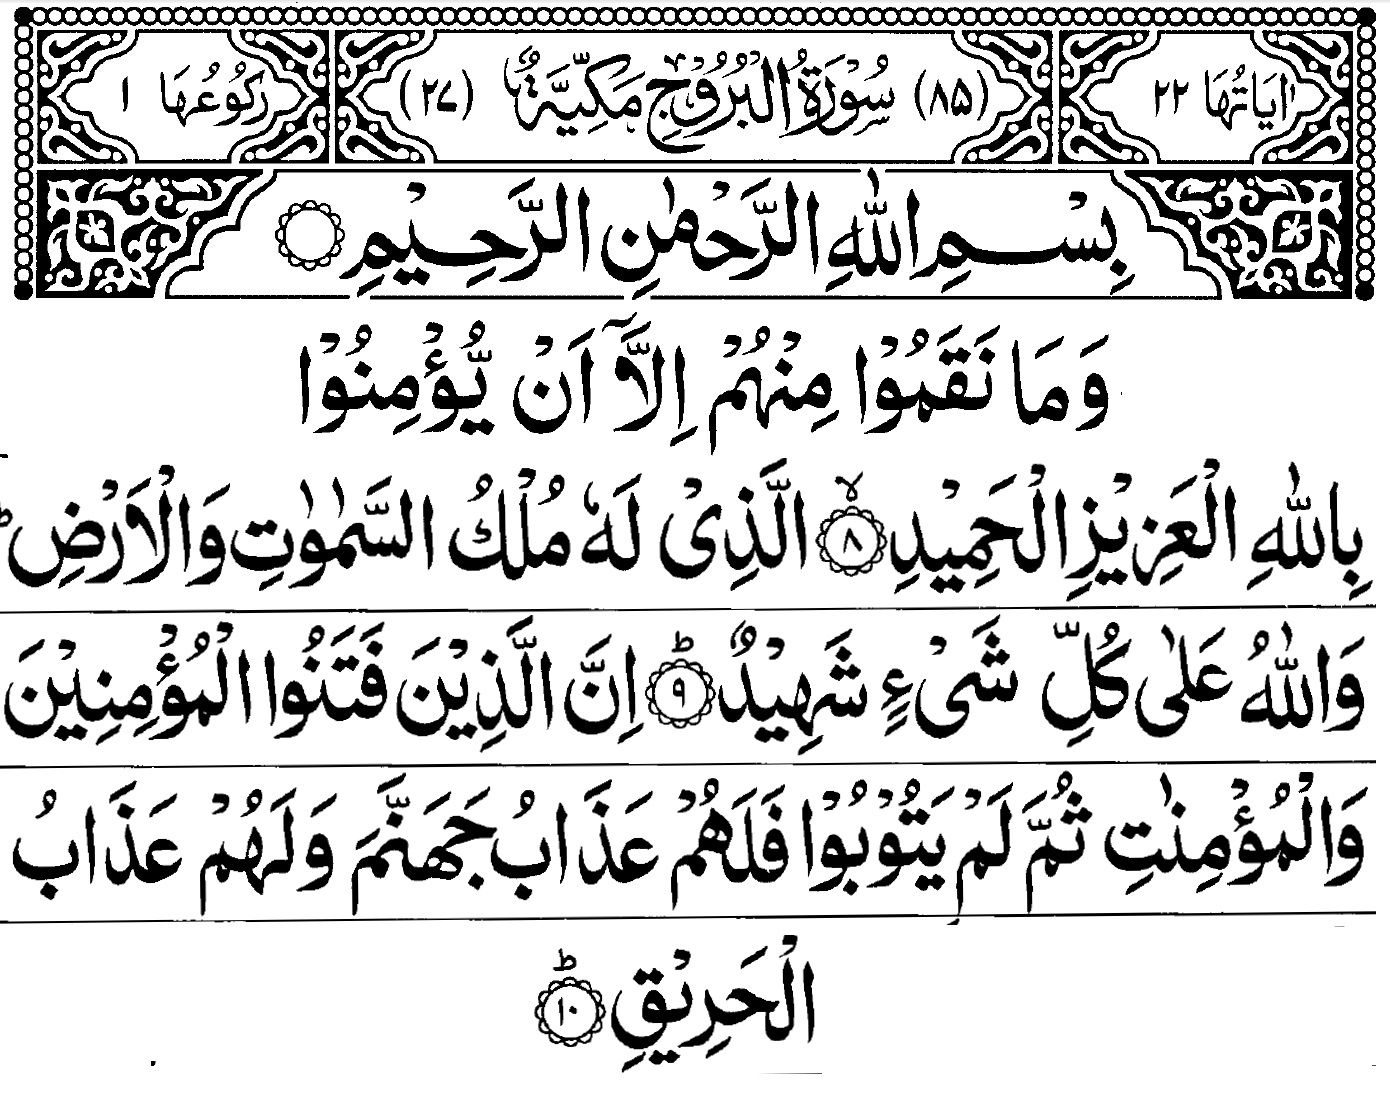 اٰيَاتُهَا ٢٢ (٨٥) سُوْرَةُ الْبُرُوْجِ مَكِّيَّةٌ (٢٧) رُكُوْعُهَا ١
بِسْمِ اللّٰهِ الرَّحْمٰنِ الرَّحِيْمِ
وَمَا نَقَمُوْا مِنْهُمْ اِلَّاۤ اَنْ يُّؤْمِنُوْا
بِاللّٰهِ الْعَزِيْزِ الْحَمِيْدِ ۙ‏﴿٨﴾ الَّذِىْ لَهٗ مُلْكُ السَّمٰوٰتِ وَالْاَرْضِ ؕ
وَاللّٰهُ عَلٰى كُلِّ شَىْءٍ شَهِيْدٌ ؕ‏﴿٩﴾ اِنَّ الَّذِيْنَ فَتَنُوا الْمُؤْمِنِيْنَ
وَالْمُؤْمِنٰتِ ثُمَّ لَمْ يَتُوْبُوْا فَلَهُمْ عَذَابُ جَهَنَّمَ وَلَهُمْ عَذَابُ
الْحَرِيْقِ ؕ‏﴿١٠﴾